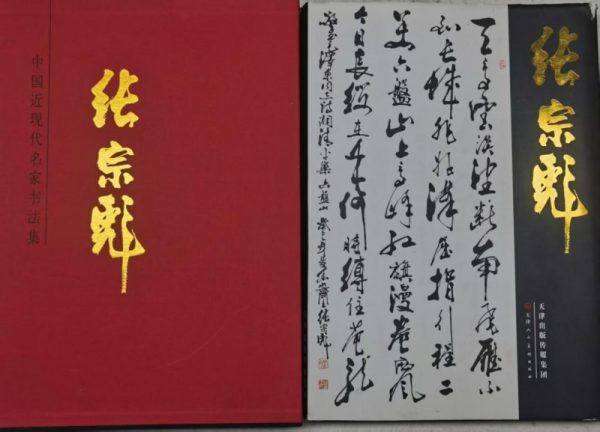 中国近现代名家书法集
张宗彪
天高云淡望断南飞雁不
到长城非好汉屈指行程二
万六盘山上高峰红旗漫卷西风
今日长缨在手何时缚住苍龙
毛泽东同志词清平乐六盘山
张宗彪
张宗彪
天津出版传媒集团
天津人民美术出版社